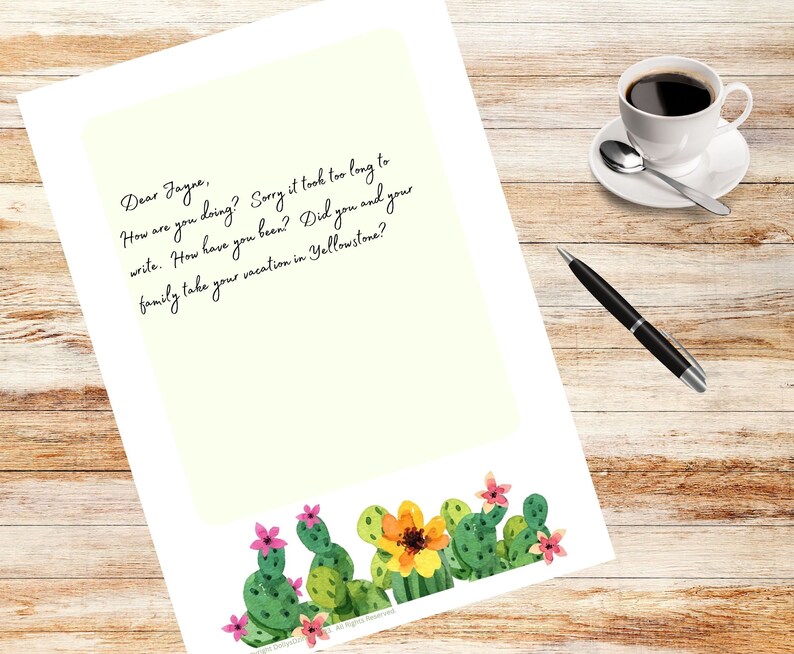 Dear Jayne,
How are you doing? Sorry it took too long to
write. How have you been? Did you and your
family take your vacation in Yellowstone?
All Rights Reserved.